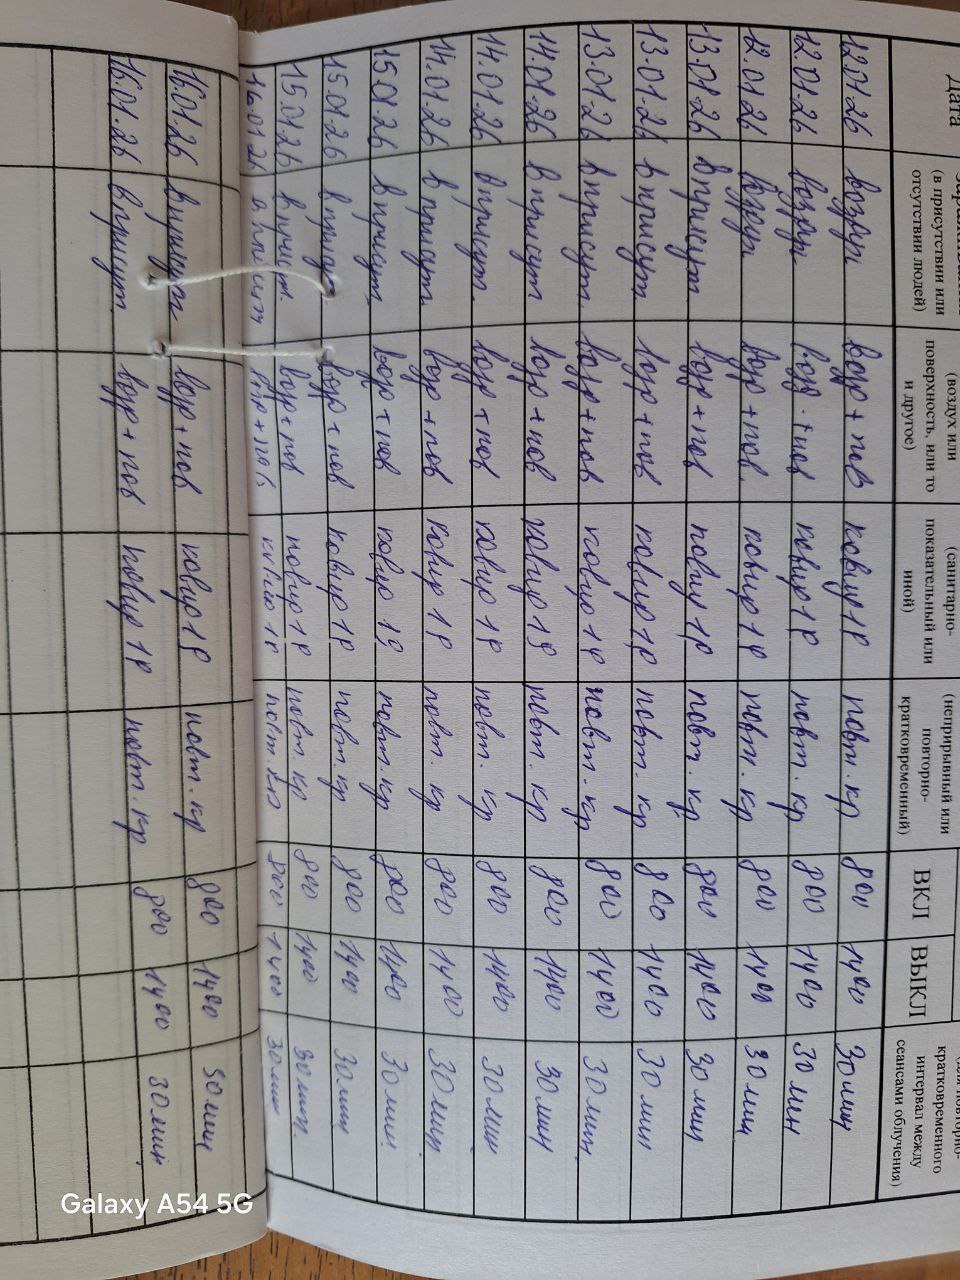 Дата
(в присутствии или
отсутствии людей)
(воздух или
поверхность, или то
и другое)
(санитарно-
показательный или
иной)
(неприрывный или
повторно-
кратковременный)
ВКЛ
ВЫКЛ
кратковременного
интервал между
сеансами облучения)
12.01.26 возд+пов ковид 1р повт.кр 800 1400 30 мин
12.01.26 возд.+пов ковид 1р повт.кр 800 1400 30 мин
12.01.26 возд+пов ковид 1р повт.кр 800 1400 30 мин
13.01.26 в присут возд+пов ковид 1р повт.кр 800 1400 30 мин
13.01.26 в присут возд+пов ковид 1р повт.кр 800 1400 30 мин
13.01.26 в присут. возд+пов ковид 1р повт.кр 800 1400 30 мин.
14.01.26 в присут возд+пов ковид 1р повт.кр 800 1400 30 мин
14.01.26 в присут. возд+пов ковид 1р повт.кр 800 1400 30 мин
14.01.26 в присут возд+пов ковид 1р повт.кр 800 1400 30 мин
15.01.26 в присут возд+пов ковид 1р повт.кр 800 1400 30 мин.
15.01.26 в присут возд+пов ковид 1р повт.кр 800 1400 30 мин
15.01.26 в присут. возд+пов ковид 1р повт.кр 800 1400 30 мин.
16.01.26 в присут возд+пов ковид 1р повт.кр 800 1400 30 мин
16.01.26 возд+пов ковид 1р повт.кр 800 1400 мин
16.01.26 в присут. возд+пов ковид 1р повт.кр 800 1400 30 мин.
Galaxy A54 5G